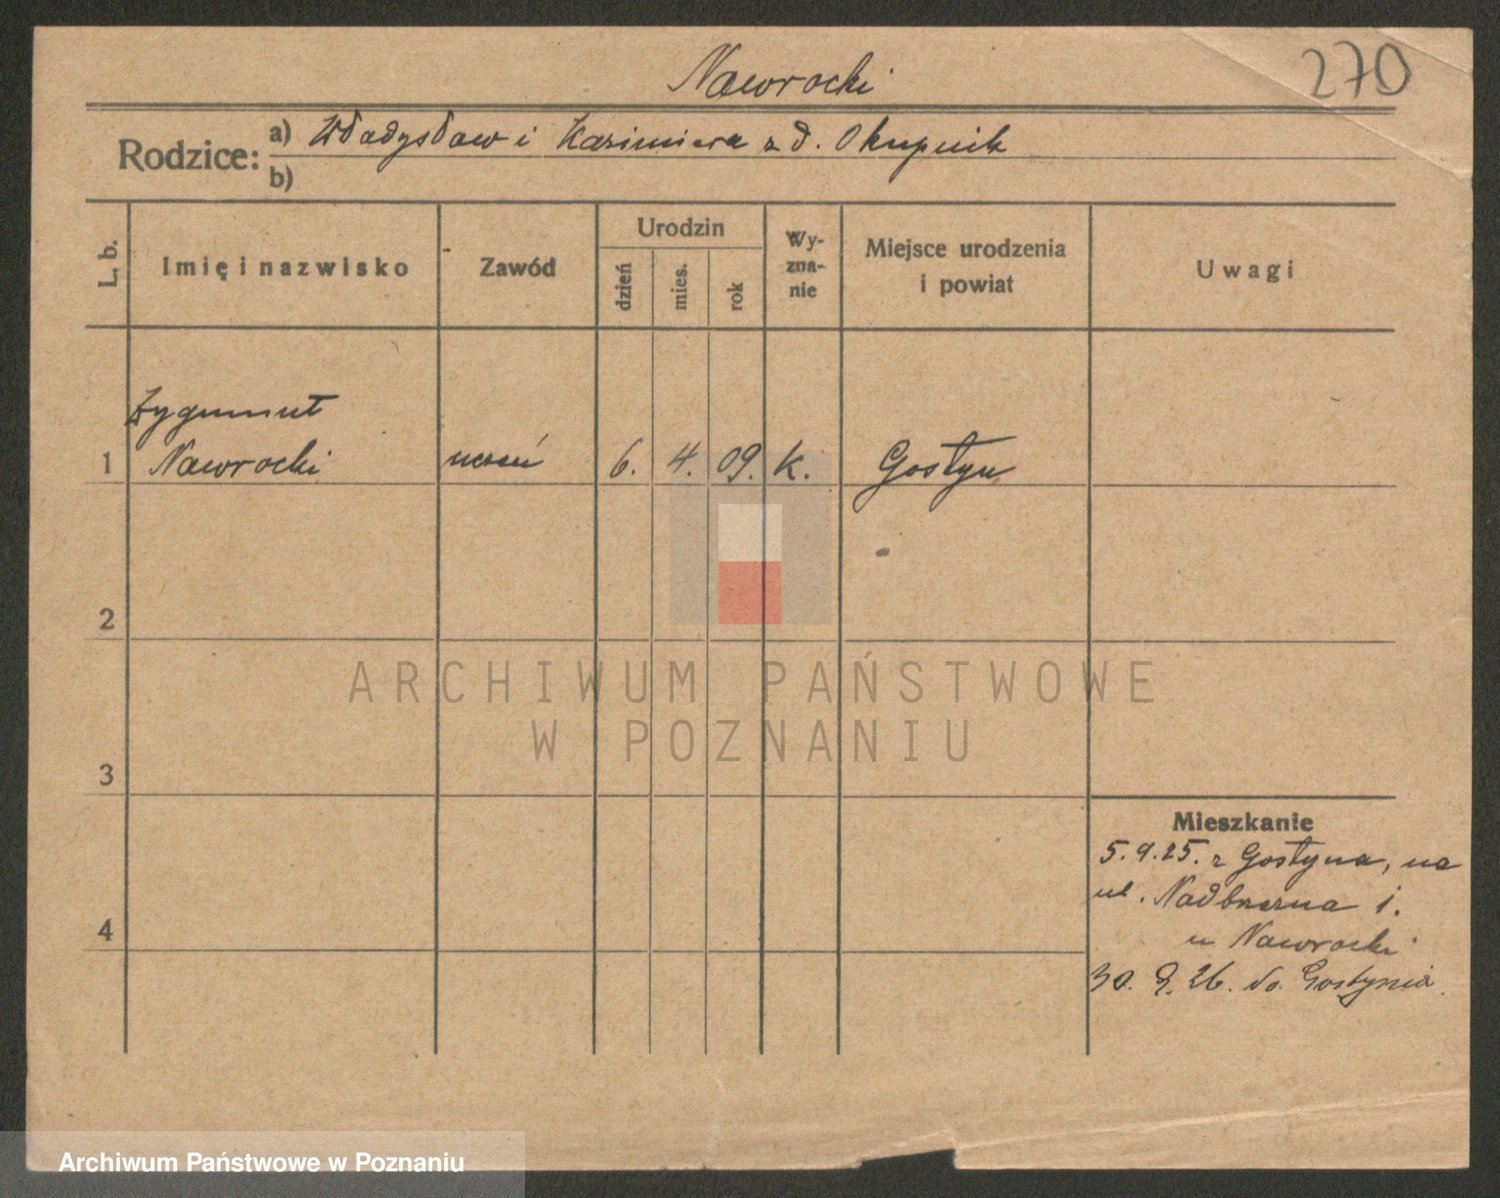 270
Nawrocki
Rodzice: a) Władysław i Kazimiera z d. Okupnik
b)
L. b.
Imię i nazwisko
Zawód
Urodzin
dzień
mies.
rok
Wy-
zna-
nie
Miejsce urodzenia
i powiat
Uwagi
Zygmunt
1 Nawrocki uczeń 6. 4. 09. k. Gostyń
2
3
4
Mieszkanie
5.9.25. z Gostynia, na
ul. Nadbrzeżna 1.
u Nawrocki
30. 9. 26. do Gostynia.
ARCHIWUM PAŃSTWOWE
W POZNANIU
Archiwum Państwowe w Poznaniu